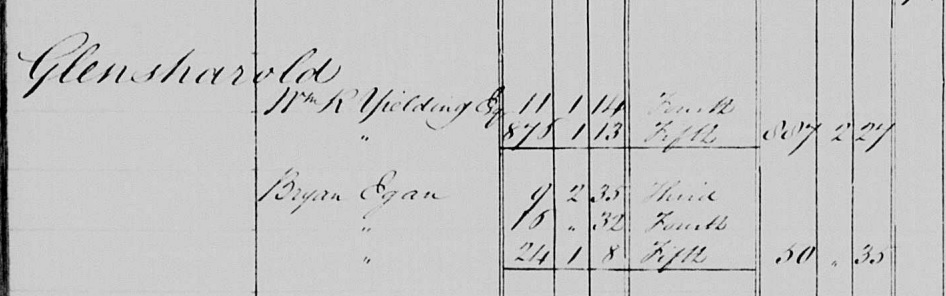 Glensharold
Wm R Yielding Esq 11 1 14 Fourth
" 876 1 13 Fifth 887 2 27
Bryan Egan 9 2 35 Third
" 16 " 32 Fourth
" 24 1 8 Fifth 50 " 35